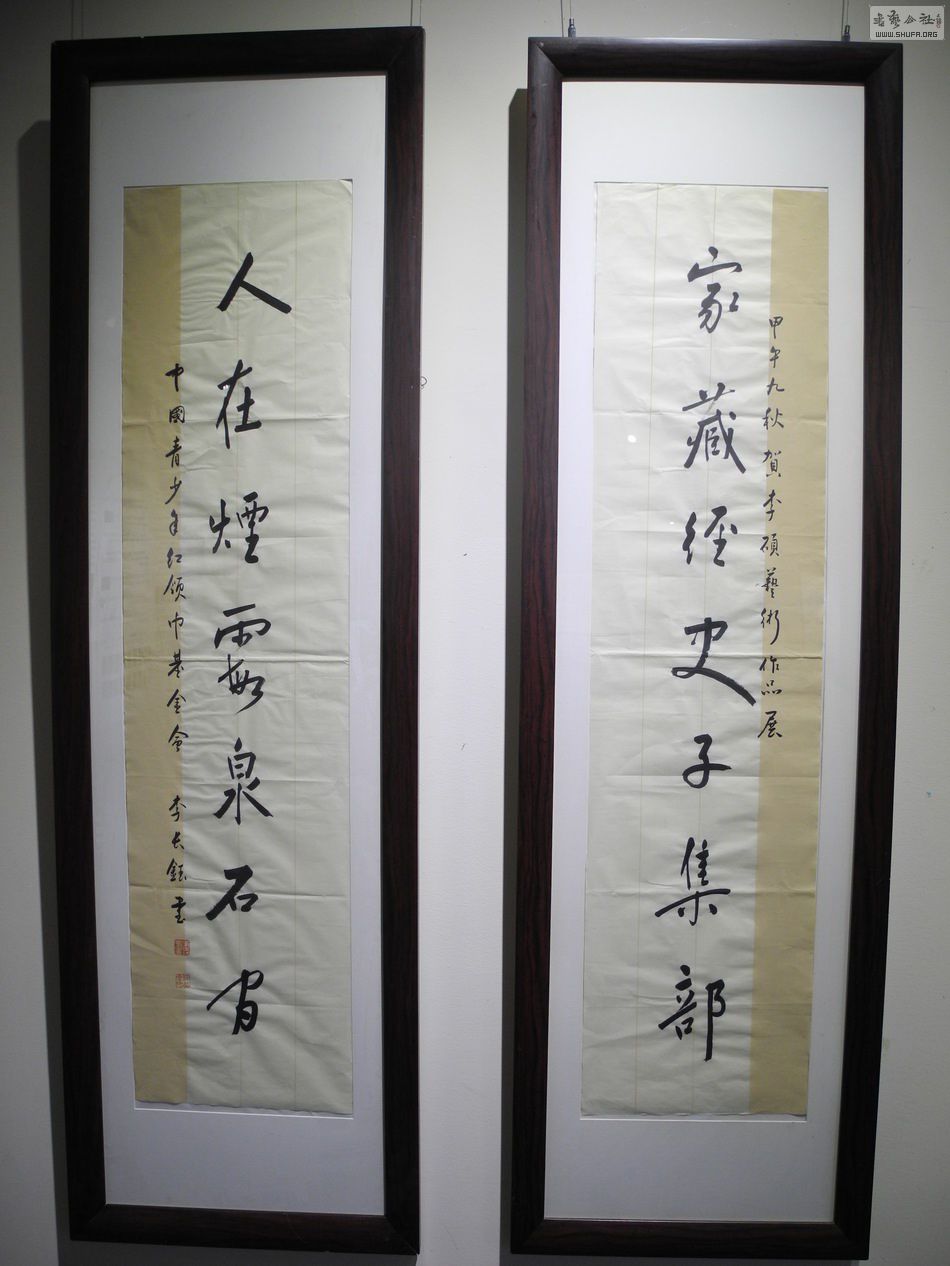 甲午九秋 贺李硕藝術作品展
家藏经史子集部
人在煙霞泉石间
中國青少年红领巾基金会 李长钰書
書藝公社
WWW.SHUFA.ORG